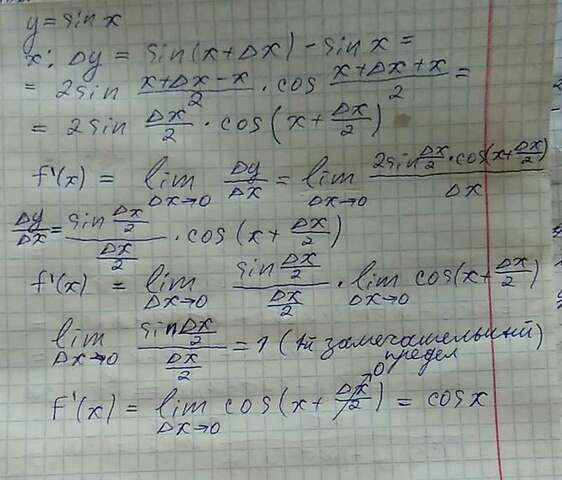 y = sin x
x: Δy = sin(x+Δx) - sin x =
= 2 sin (x+Δx-x)/2 · cos (x+Δx+x)/2 =
= 2 sin Δx/2 · cos(x + Δx/2)
f'(x) = lim Δx→0 Δy/Δx = lim Δx→0 (2 sin Δx/2 · cos(x+Δx/2))/Δx
Δy/Δx = (sin Δx/2)/(Δx/2) · cos(x + Δx/2)
f'(x) = lim Δx→0 (sin Δx/2)/(Δx/2) · lim Δx→0 cos(x + Δx/2)
lim Δx→0 (sin Δx/2)/(Δx/2) = 1 (1й замечательный предел)
f'(x) = lim Δx→0 cos(x + Δx/2 →0) = cos x